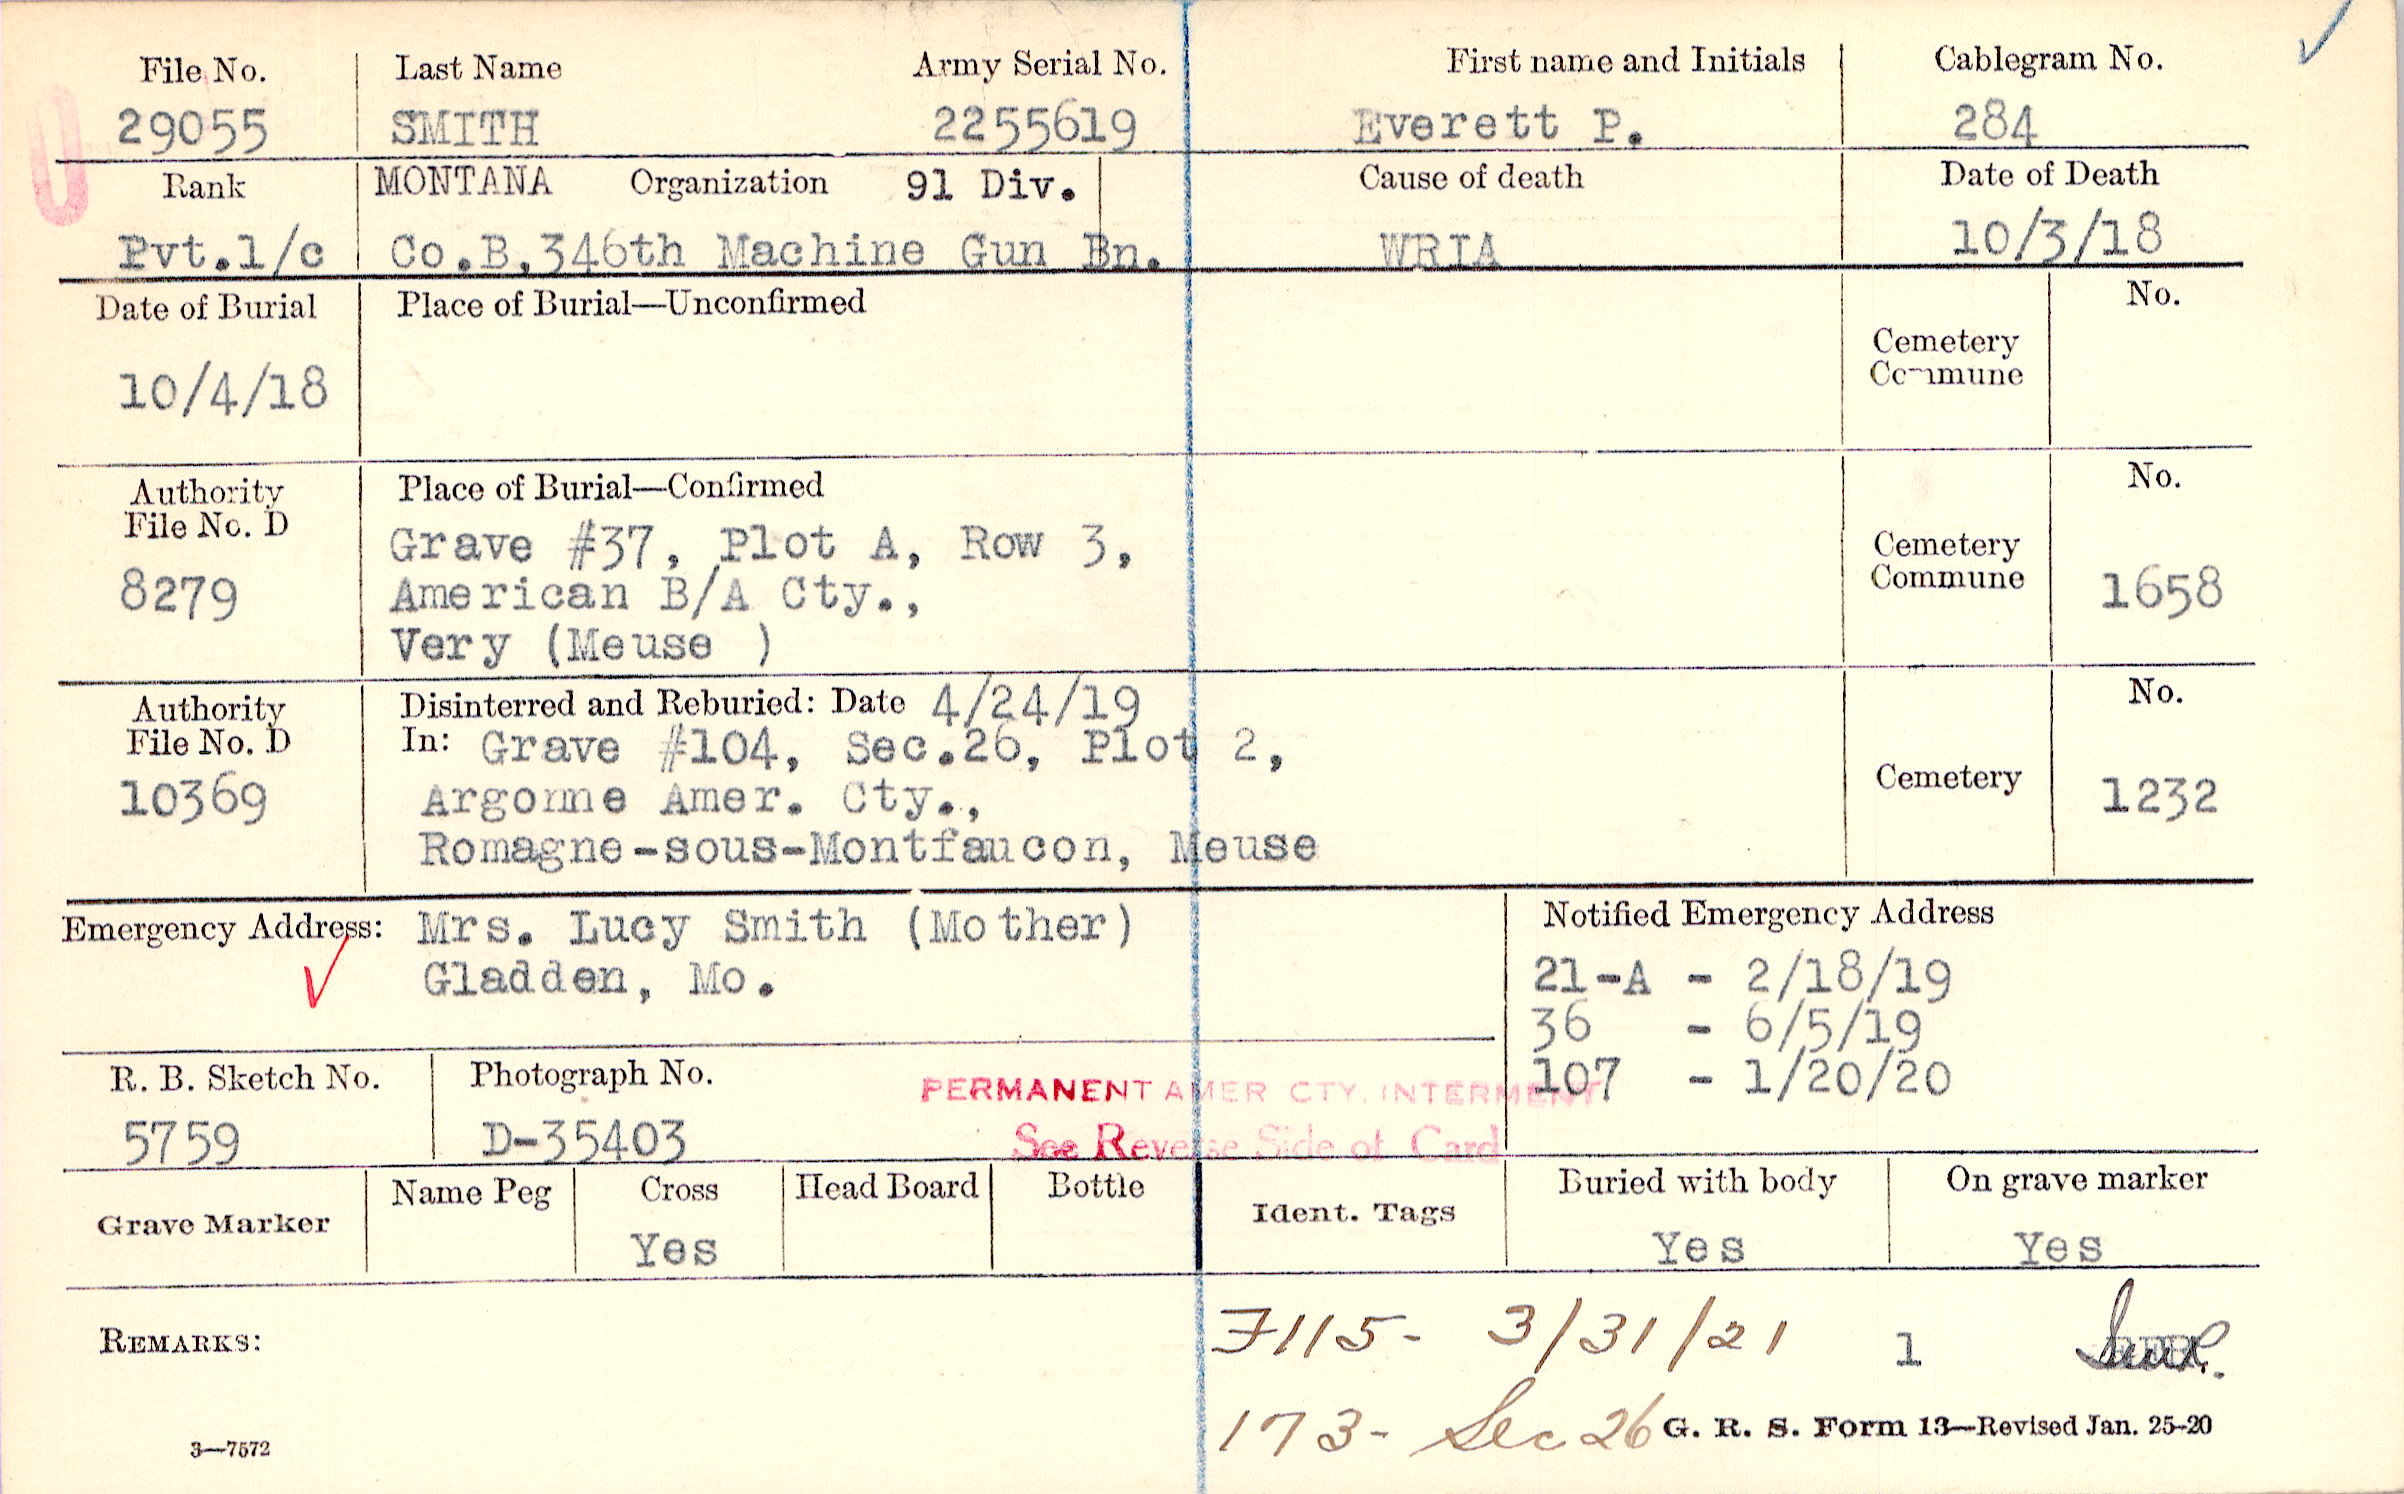 File No. Last Name Army Serial No. First name and Initials Cablegram No.
29055 SMITH 2255619 Everett P. 284
Rank MONTANA Organization 91 Div. Cause of death Date of Death
Pvt.1/c Co.B,346th Machine Gun Bn. WRIA 10/3/18
Date of Burial Place of Burial—Unconfirmed No.
10/4/18 Cemetery
Commune
Authority Place of Burial—Confirmed No.
File No. D Grave #37, Plot A, Row 3, Cemetery
8279 American B/A Cty., Commune 1658
Very (Meuse )
Authority Disinterred and Reburied: Date 4/24/19 No.
File No. D In: Grave #104, Sec.26, Plot 2,
10369 Argonne Amer. Cty., Cemetery 1232
Romagne-sous-Montfaucon, Meuse
Emergency Address: Mrs. Lucy Smith (Mother) Notified Emergency Address
Gladden, Mo. 21-A - 2/18/19
36 - 6/5/19
R. B. Sketch No. Photograph No. PERMANENT AMER CTY. INTERMENT 107 - 1/20/20
5759 D-35403 See Reverse Side of Card
Grave Marker Name Peg Cross Head Board Bottle Ident. Tags Buried with body On grave marker
Yes Yes Yes
REMARKS: 7115- 3/31/21 1
173- Sec 26 G. R. S. Form 13—Revised Jan. 25-20
3—7572